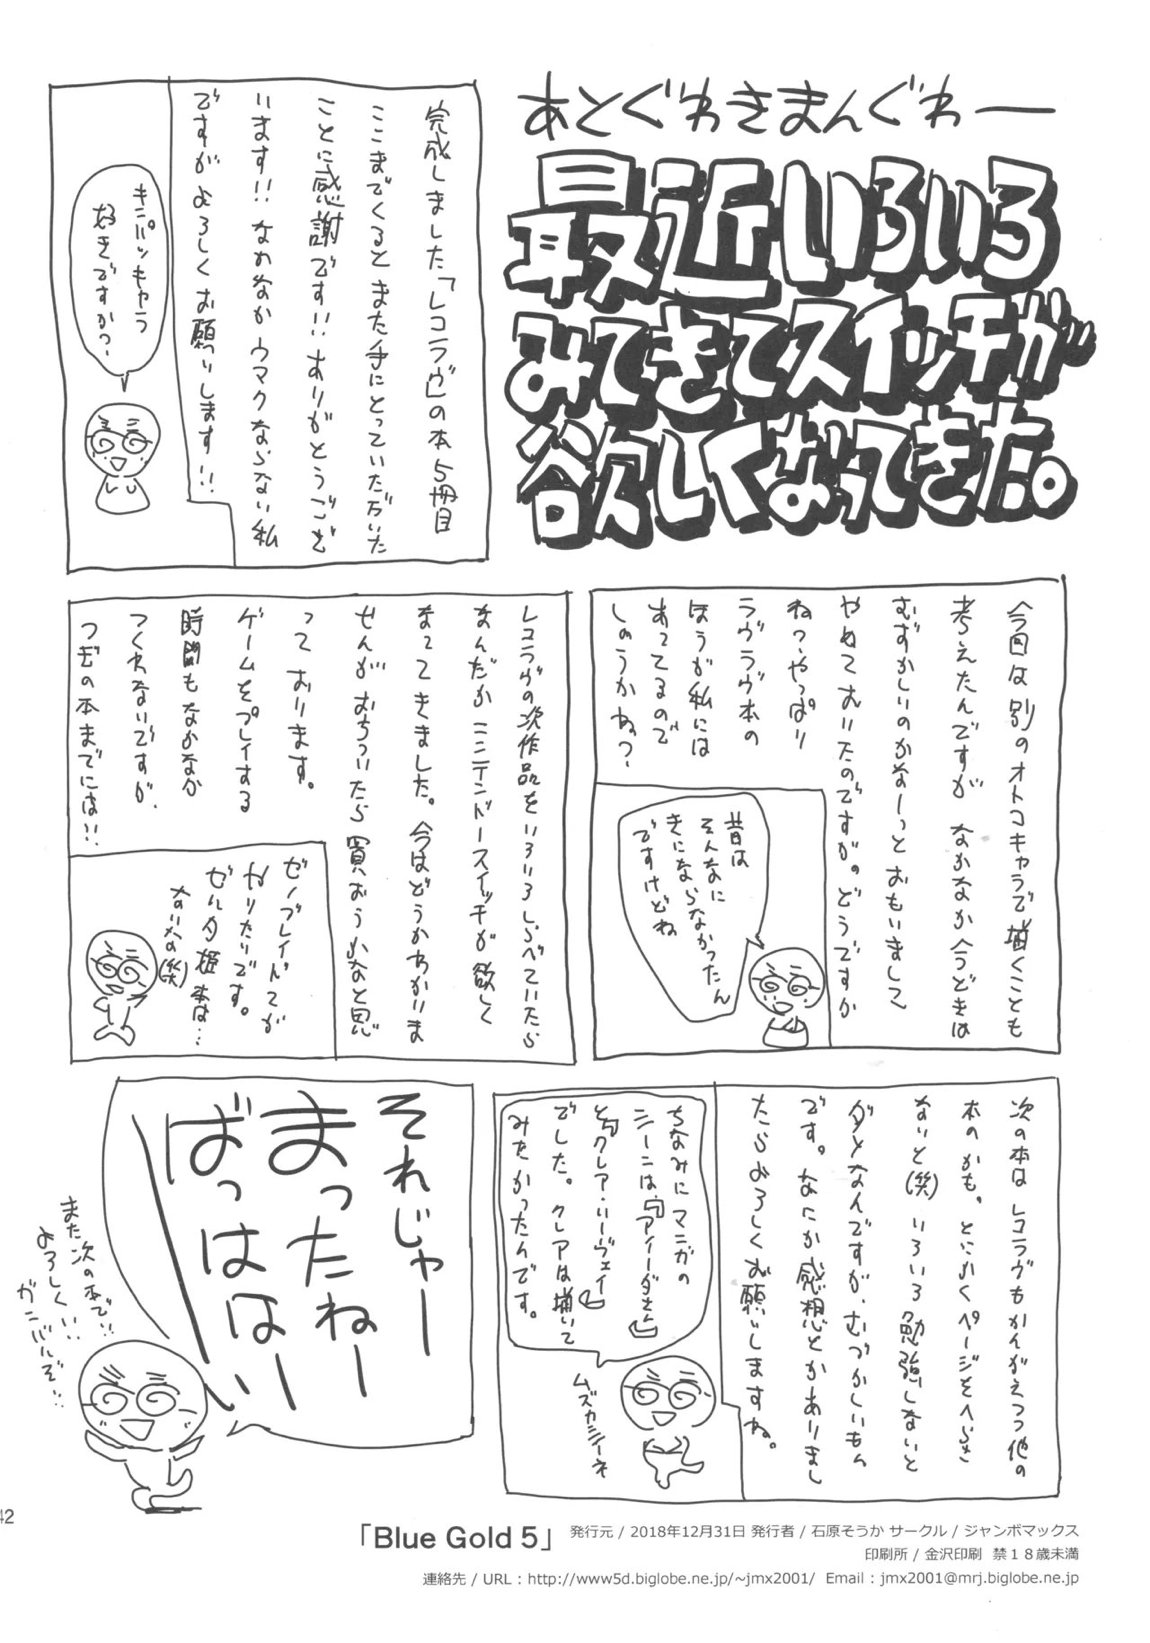 あとぐわきまんぐわー
最近いろいろ
みてきてスイッチが
欲しくなってきた。
完成しました「レコラヴ」の本5冊目
ここまでくるとまた手にとっていただいた
ことに感謝です!!ありがとうござ
います!!なかなかウマクならない私
ですがよろしくお願いします!!
キンパツキャラ
好きですかっ
今回は別のオトコキャラで描くことも
考えたんですがなかなか今どきは
むずかしいのかなーっとおもいまして
やめておいたのですが。どうですか
ねっやっぱり
ラヴラヴ本の
ほうが私には
あってるので
しょうかね?
昔は
そんなに
きにならなかったん
ですけどね
レコラヴの次作品をいろいろしらべていたら
なんだかニンテンドースイッチが欲しく
なってきました。今はどうかわかりま
せんがおちついたら買おうかなと思
っております。
ゲームをプレイする
時間もなかなか
つくれないですが、
つぎの本までには!!
ゼノブレイドとか
やりたいです。
ゼルダ姫本は…
ないなの(笑)
次の本はレコラヴもかんがえつつ他の
本のかも。とにかくページをへらさ
ないと(笑)いろいろ勉強しないと
ダメなんですが、むづかしいもん
です。なにか感想とかありまし
たらよろしくお願いしますね。
ちなみにマンガの
シーンは「アイーダさん」
と「クレア・ハーヴェイ」
でした。クレアは描いて
みたかったんです。
ムズカシーネ
それじゃー
まったねー
ばっはは〜い
また次の本で!!
よろしくい!!
ガンバルぞ!!
42
「Blue Gold 5」 発行元 / 2018年12月31日 発行者 / 石原そうか サークル / ジャンボマックス
印刷所 / 金沢印刷 禁18歳未満
連絡先 / URL : http://www5d.biglobe.ne.jp/~jmx2001/ Email : jmx2001@mrj.biglobe.ne.jp